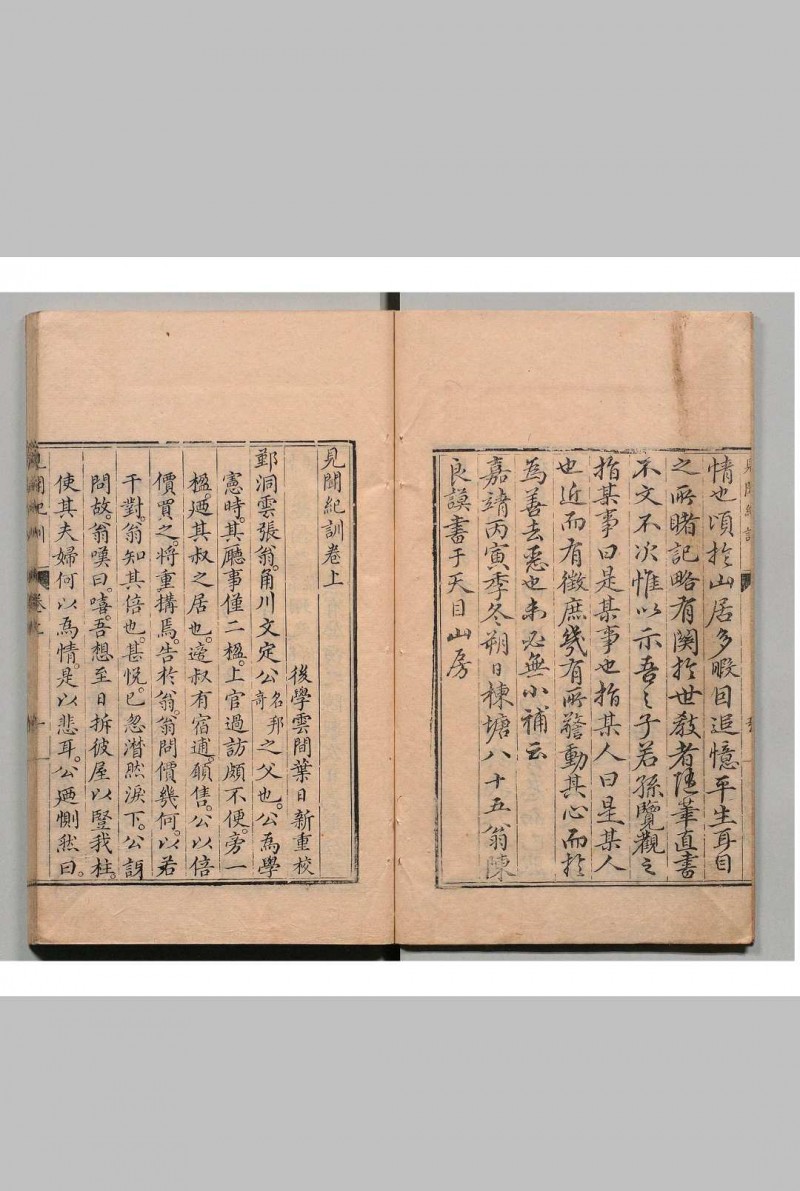 情也頃於山居多暇因追憶平生耳目
之所睹記略有関於世教者随筆直書
不文不次惟以示吾之子若孫覽觀之
指某事曰是某事也指某人曰是某人
也近而有徵庶幾有所警動其心而於
為善去惡也未必無小補云
嘉靖丙寅季冬朔日棟塘八十五翁陳
良謨書于天目山房
見聞紀訓卷上
後學雲間葉日新重校
鄞洞雲張翁。角川文定公名邦奇之父也。公為學
憲時。其廳事僅二楹。上官過訪頗不便。旁一
楹。廼其叔之居也。適叔有宿逋。願售。公以倍
價買之。將重搆焉。告於翁。翁問價幾何。以若
干對。翁知其倍也。甚悦。已忽潸然淚下。公訝
問故。翁嘆曰。嘻。吾想至日拆彼屋以豎我柱。
使其夫婦何以為情。是以悲耳。公廼惻然曰。
見聞紀訓
卷上
一